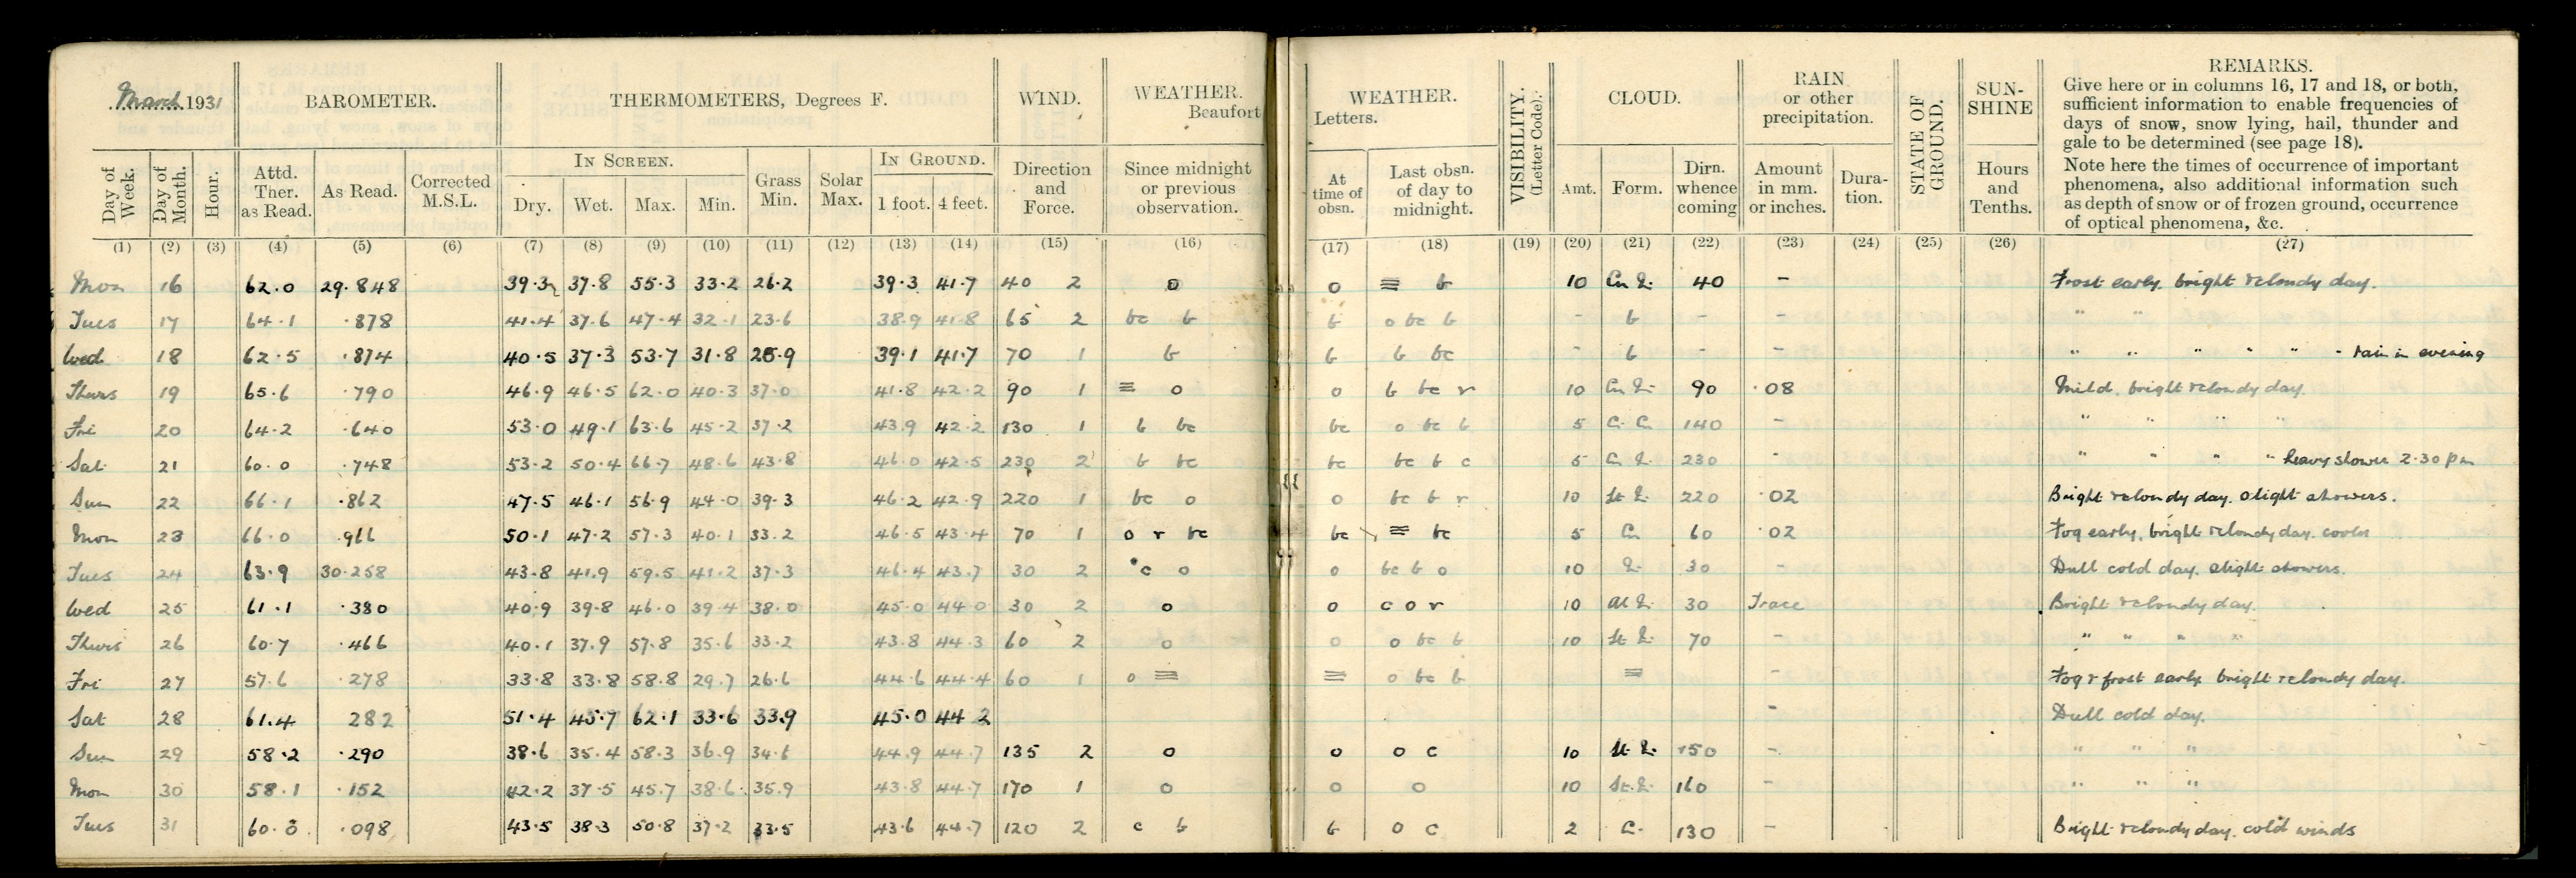 March 1931
BAROMETER.
THERMOMETERS, Degrees F.
WIND.
WEATHER.
Beaufort
WEATHER.
Letters.
VISIBILITY.
(Letter Code).
CLOUD.
RAIN
or other
precipitation.
STATE OF
GROUND.
SUN-
SHINE
REMARKS.
Give here or in columns 16, 17 and 18, or both,
sufficient information to enable frequencies of
days of snow, snow lying, hail, thunder and
gale to be determined (see page 18).
Note here the times of occurrence of important
phenomena, also additional information such
as depth of snow or of frozen ground, occurrence
of optical phenomena, &c.
Day of
Week.
Day of
Month.
Hour.
Attd.
Ther.
as Read.
As Read.
Corrected
M.S.L.
IN SCREEN.
Dry. Wet. Max. Min.
Grass
Min.
Solar
Max.
IN GROUND.
1 foot. 4 feet.
Direction
and
Force.
Since midnight
or previous
observation.
At
time of
obsn.
Last obsn.
of day to
midnight.
Amt. Form.
Dirn.
whence
coming
Amount
in mm.
or inches.
Dura-
tion.
Hours
and
Tenths.
(1) (2) (3) (4) (5) (6) (7) (8) (9) (10) (11) (12) (13) (14) (15) (16) (17) (18) (19) (20) (21) (22) (23) (24) (25) (26) (27)
Mon 16 62.0 29.848 39.3 37.8 55.3 33.2 26.2 39.3 41.7 40 2 o o ≡ b 10 40 - Frost early. bright & cloudy day.
Tues 17 64.1 .878 41.4 37.6 47.4 32.1 23.6 38.9 41.8 65 2 bc b b o bc b - b - - " "
Wed 18 62.5 .874 40.5 37.3 53.7 31.8 25.9 39.1 41.7 70 1 b b b bc - b - - " " " " " " rain in evening
Thurs 19 65.6 .790 46.9 46.5 62.0 40.3 37.0 41.8 42.2 90 1 ≡ o o b bc r 10 90 .08 Mild. bright & cloudy day.
Fri 20 64.2 .640 53.0 49.1 63.6 45.2 37.2 43.9 42.2 130 1 b bc bc o bc b 5 140 - " " " "
Sat 21 60.0 .748 53.2 50.4 66.7 48.6 43.8 46.0 42.5 230 2 b bc bc bc b c 5 230 - " " " " heavy shower 2.30 pm
Sun 22 66.1 .862 47.5 46.1 56.9 44.0 39.3 46.2 42.9 220 1 bc o o bc b r 10 220 .02 Bright & cloudy day. slight showers.
Mon 23 66.0 .966 50.1 47.2 57.3 40.1 33.2 46.5 43.4 70 1 o r bc bc ≡ bc 5 Cu 60 .02 Fog early, bright & cloudy day. cooler
Tues 24 63.9 30.258 43.8 41.9 59.5 41.2 37.3 46.4 43.7 30 2 c o o bc b o 10 30 - Dull cold day. slight showers.
Wed 25 61.1 .380 40.9 39.8 46.0 39.4 38.0 45.0 44.0 30 2 o o c o r 10 30 Trace Bright & cloudy day.
Thurs 26 60.7 .466 40.1 37.9 57.8 35.6 33.2 43.8 44.3 60 2 o o o bc b 10 70 - " " " "
Fri 27 57.6 .278 33.8 33.8 58.8 29.7 26.6 44.6 44.4 60 1 o ≡ ≡ o bc b ≡ - Fog & frost early bright & cloudy day.
Sat 28 61.4 282 51.4 45.7 62.1 33.6 33.9 45.0 44 2 - Dull cold day.
Sun 29 58.2 .290 38.6 35.4 58.3 36.9 34.6 44.9 44.7 135 2 o o o c 10 150 - " " "
Mon 30 58.1 .152 42.2 37.5 45.7 38.6 35.9 43.8 44.7 170 1 o o o 10 160 - " " "
Tues 31 60.0 .098 43.5 38.3 50.8 37.2 33.5 43.6 44.7 120 2 c b b o c 2 130 - Bright & cloudy day. cold winds